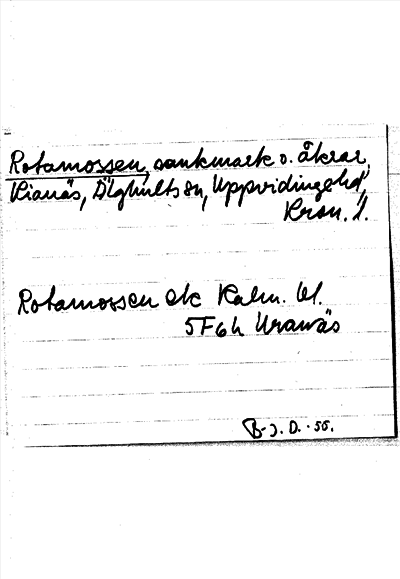 Rotamossen, sankmark o. åkrar,
Kianäs, Älghults sn, Uppvidinge hd,
Kron. l.
Rotamossen ek Kalm. bl.
5F6h Uranäs
B-J. D. -55.